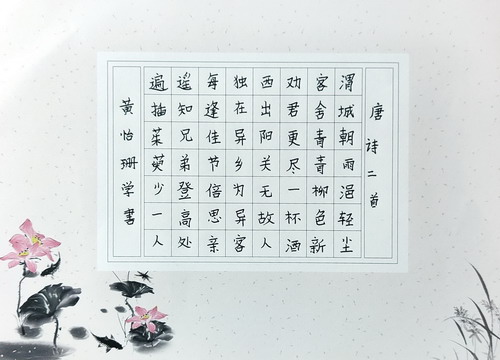 唐诗二首
渭城朝雨浥轻尘
客舍青青柳色新
劝君更尽一杯酒
西出阳关无故人
独在异乡为异客
每逢佳节倍思亲
遥知兄弟登高处
遍插茱萸少一人
黄怡珊学書